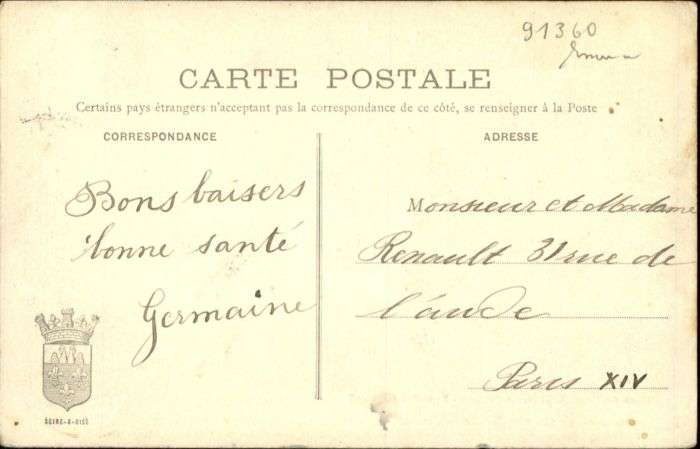 91360
CARTE POSTALE
Certains pays étrangers n'acceptant pas la correspondance de ce côté, se renseigner à la Poste
CORRESPONDANCE
Bons baisers
bonne santé
Germaine
SEINE-&-OISE
ADRESSE
Monsieur et Madame
Renault 31 rue de
l'aude
Paris XIV